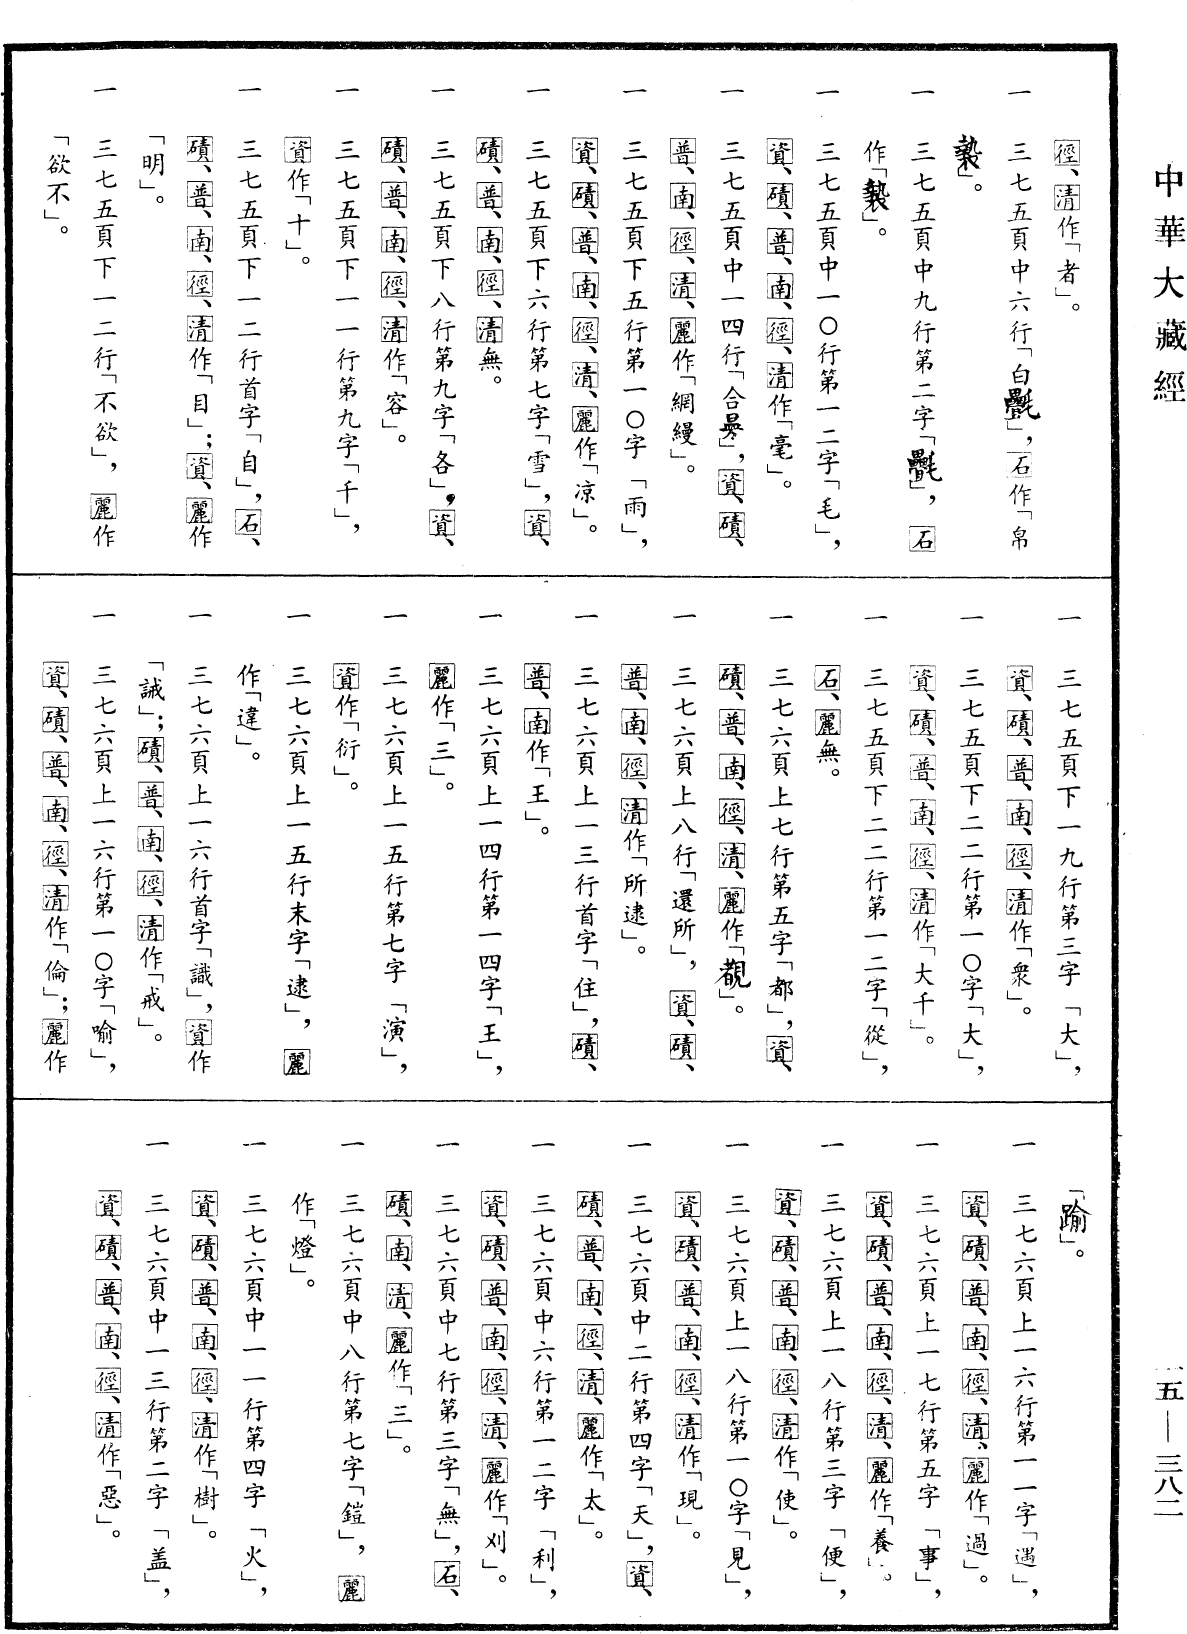 中華大藏經
徑、清作「者」。
一　三七五頁中六行「白氎」，石作「帛
褺」。
一　三七五頁中九行第二字「氎」，石
作「褺」。
一　三七五頁中一〇行第一二字「毛」，
資、磧、普、南、徑、清作「毫」。
一　三七五頁中一四行「合晜」，資、磧、
普、南、徑、清、麗作「網縵」。
一　三七五頁下五行第一〇字「雨」，
資、磧、普、南、徑、清、麗作「凉」。
一　三七五頁下六行第七字「雪」，資、
磧、普、南、徑、清無。
一　三七五頁下八行第九字「各」，資、
磧、普、南、徑、清作「容」。
一　三七五頁下一一行第九字「千」，
資作「十」。
一　三七五頁下一二行首字「自」，石、
磧、普、南、徑、清作「目」；資、麗作
「明」。
一　三七五頁下一二行「不欲」，麗作
「欲不」。
一　三七五頁下一九行第三字「大」，
資、磧、普、南、徑、清作「衆」。
一　三七五頁下二二行第一〇字「大」，
資、磧、普、南、徑、清作「大千」。
一　三七五頁下二二行第一二字「從」，
石、麗無。
一　三七六頁上七行第五字「都」，資、
磧、普、南、徑、清、麗作「覩」。
一　三七六頁上八行「還所」，資、磧、
普、南、徑、清作「所逮」。
一　三七六頁上一三行首字「住」，磧、
普、南作「王」。
一　三七六頁上一四行第一四字「王」，
麗作「三」。
一　三七六頁上一五行第七字「演」，
資作「衍」。
一　三七六頁上一五行末字「逮」，麗
作「違」。
一　三七六頁上一六行首字「識」，資作
「誡」；磧、普、南、徑、清作「戒」。
一　三七六頁上一六行第一〇字「喻」，
資、磧、普、南、徑、清作「倫」；麗作
「踰」。
一　三七六頁上一六行第一一字「遇」，
資、磧、普、南、徑、清、麗作「過」。
一　三七六頁上一七行第五字「事」，
資、磧、普、南、徑、清、麗作「養」。
一　三七六頁上一八行第三字「便」，
資、磧、普、南、徑、清作「使」。
一　三七六頁上一八行第一〇字「見」，
資、磧、普、南、徑、清作「現」。
一　三七六頁中二行第四字「天」，資、
磧、普、南、徑、清、麗作「太」。
一　三七六頁中六行第一二字「利」，
資、磧、普、南、徑、清、麗作「刈」。
一　三七六頁中七行第三字「無」，石、
磧、南、清、麗作「三」。
一　三七六頁中八行第七字「鎧」，麗
作「燈」。
一　三七六頁中一一行第四字「火」，
資、磧、普、南、徑、清作「樹」。
一　三七六頁中一三行第二字「盖」，
資、磧、普、南、徑、清作「惡」。
一五—三八二